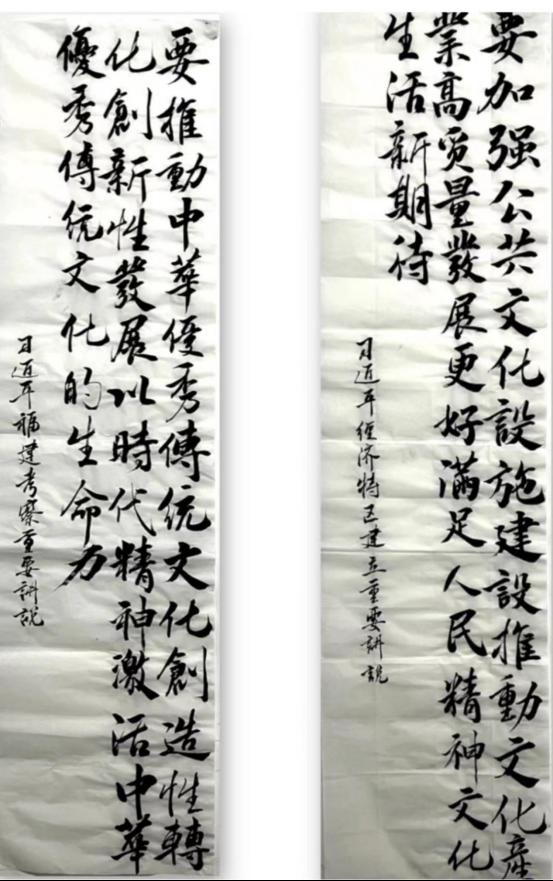 要加强公共文化設施建設推動文化産
業高质量發展更好满足人民精神文化
生活新期待
习近平經济特区建立重要讲說
要推動中華優秀傳统文化創造性轉
化創新性發展以時代精神激活中華
優秀傳统文化的生命力
习近平福建考察重要讲說